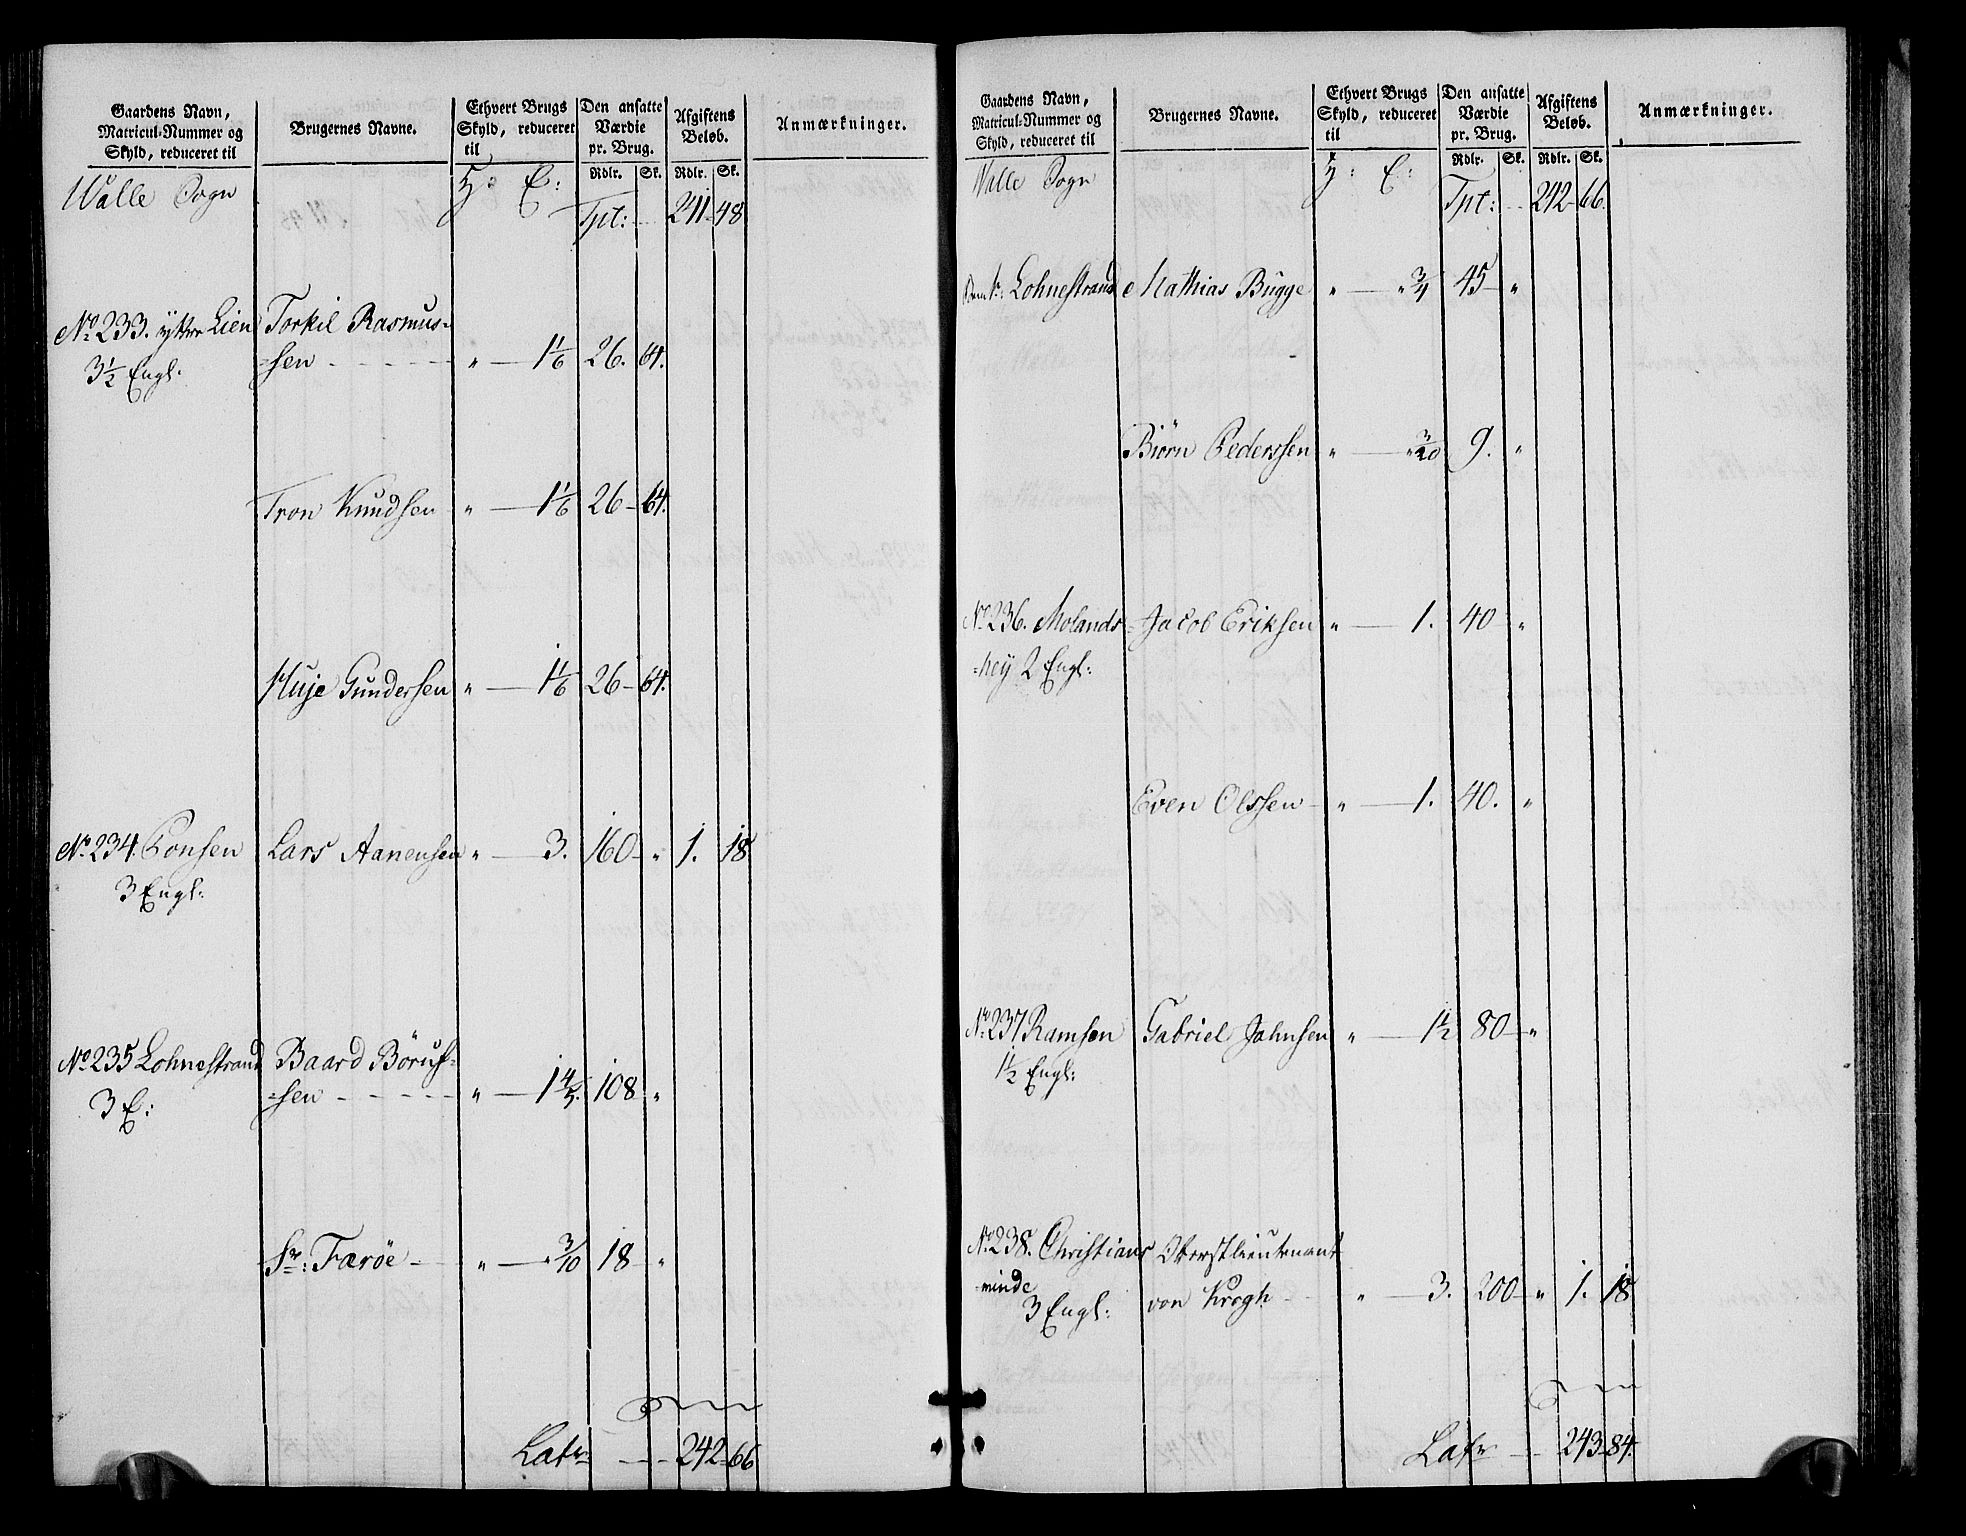 Gaardens Navn,
Matricul-Nummer og
Skyld, reduceret til
Brugernes Navne.
Ethvert Brugs
Skyld, reduceret
til
Den ansatte
Værdie
pr. Brug.
Afgiftens
Beløb.
Anmærkninger.
Rdlr. Sk. Rdlr. Sk.
Walle Sogn H: E: Tpt: 241 - 48
No 233. yttre Lien Torkil Rasmus-
3 1/2 Engl. -sen - - - - " — 1 1/6 26. 64.
Tron Knudsen " — 1 1/6 26 - 64.
Huje Gundersen " — 1 1/6 26 - 64.
No 234. Ponsen Lars Aanensen " — 3. 160 - " 1. 18
3 Engl:
No 235 Lohnestrand Baard Börus-
3 E: -sen - - - - - " — 1 4/5. 108 "
Sr: Færöe - - " — " 3/10 18 - "
Latr — 242 - 66
Gaardens Navn,
Matricul-Nummer og
Skyld, reduceret til
Brugernes Navne.
Ethvert Brugs
Skyld, reduceret
til
Den ansatte
Værdie
pr. Brug.
Afgiftens
Beløb.
Anmærkninger.
Rdlr. Sk. Rdlr. Sk.
Walle Sogn H: E: Tpt: 242 - 66.
Lohnestrand Mathias Bugge " — " 3/4 45 - "
Biörn Pederssen " — " 3/20 9. "
No 236. Molands- Jacob Eriksen " — 1. 40 - "
-hey 2 Engl:
Even Olssen - " — 1. 40. "
No 237 Ramsen Gabriel Jahnsen " — 1 1/2 80 - "
1 1/2 Engl:
No 238. Christians Oberstlieutenant
minde von Krogh - - " — 3. 200 - " 1. 18
3 Engl:
Latr — 243 - 84.